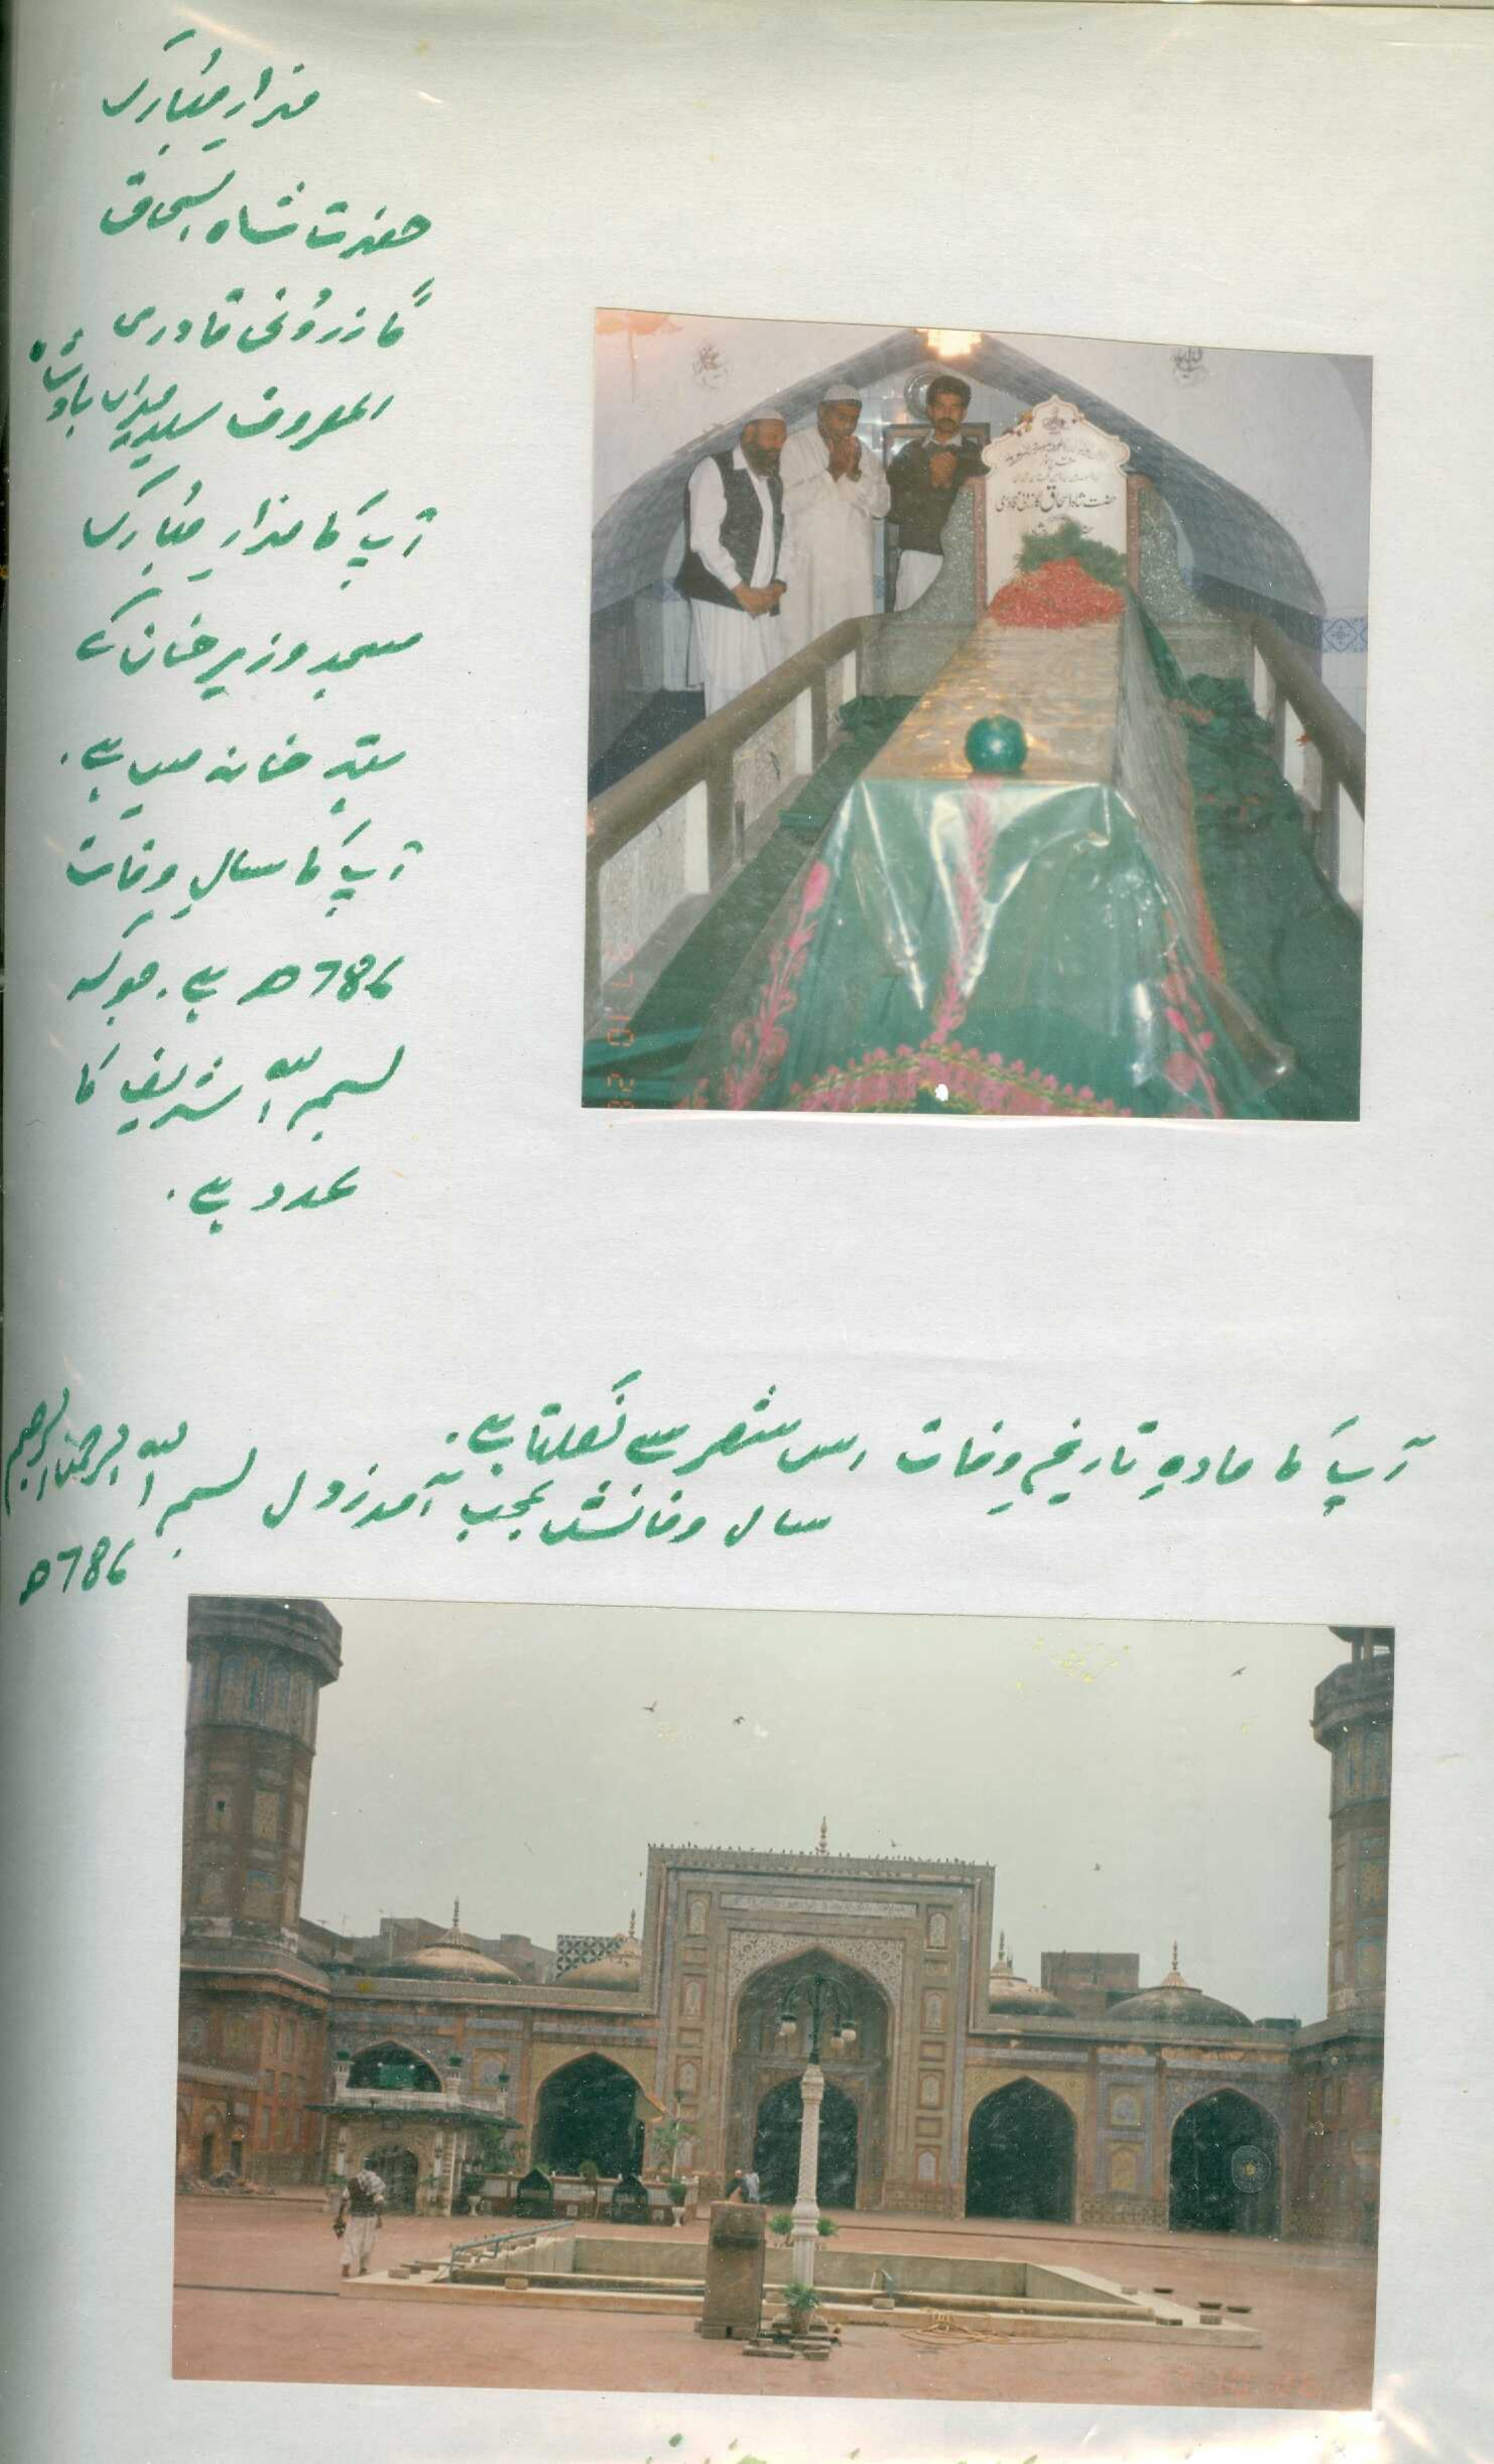 مزار مبارک
حضرت شاہ اسحاق
گازرونی قادری
المعروف سید میراں بادشاہ
آپ کا مزار مبارک
مسجد وزیر خان کے
تہہ خانہ میں ہے۔
آپ کا سالِ وفات
786ھ ہے۔ جو کہ
بسم اللہ شریف کا
عدد ہے۔
حضرت شاہ اسحاق گازرونی قادری
آپ کا مادہِ تاریخِ وفات اس شعر سے نکلتا ہے۔
سال وفاتش عجب آمد ز دل بسم اللہ الرحمن الرحیم
786ھ